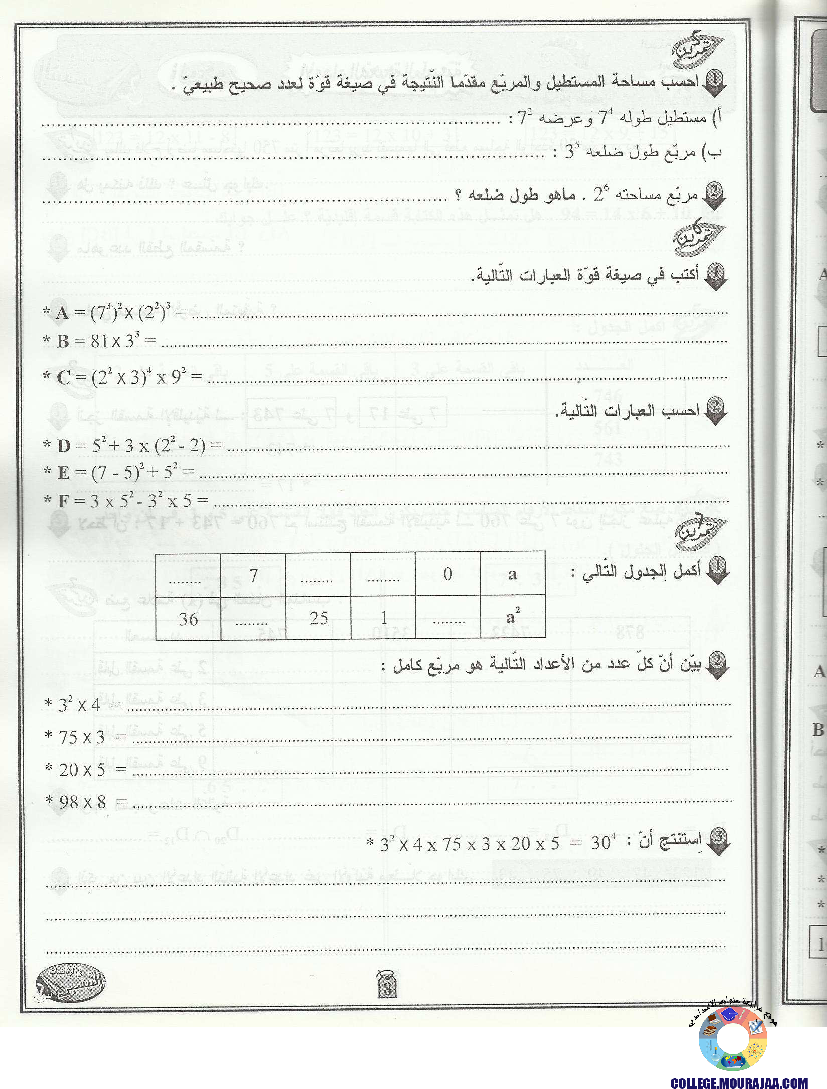 تمرين 5
1 احسب مساحة المستطيل والمربّع مقدّما النّتيجة في صيغة قوّة لعدد صحيح طبيعيّ .
أ) مستطيل طوله 7⁴ وعرضه 7² : ........................
ب) مربّع طول ضلعه 3⁵ : ........................
2 مربّع مساحته 2⁶ . ماهو طول ضلعه ؟ ........................
تمرين 6
1 أكتب في صيغة قوّة العبارات التّالية.
* A = (7³)² x (2²)³ = ........................
* B = 81 x 3³ = ........................
* C = (2² x 3)⁴ x 9² = ........................
2 احسب العبارات التّالية.
* D = 5² + 3 x (2² - 2) = ........................
* E = (7 - 5)² + 5² = ........................
* F = 3 x 5² - 3² x 5 = ........................
تمرين 7
1 أكمل الجدول التّالي :
........ 7 ........ ........ 0 a
36 ........ 25 1 ........ a²
2 بيّن أنّ كلّ عدد من الأعداد التّالية هو مربّع كامل :
* 3² x 4 = ........................
* 75 x 3 = ........................
* 20 x 5 = ........................
* 98 x 8 = ........................
3 إستنتج أنّ : * 3² x 4 x 75 x 3 x 20 x 5 = 30⁴
........................
........................
........................
3
COLLEGE.MOURAJAA.COM